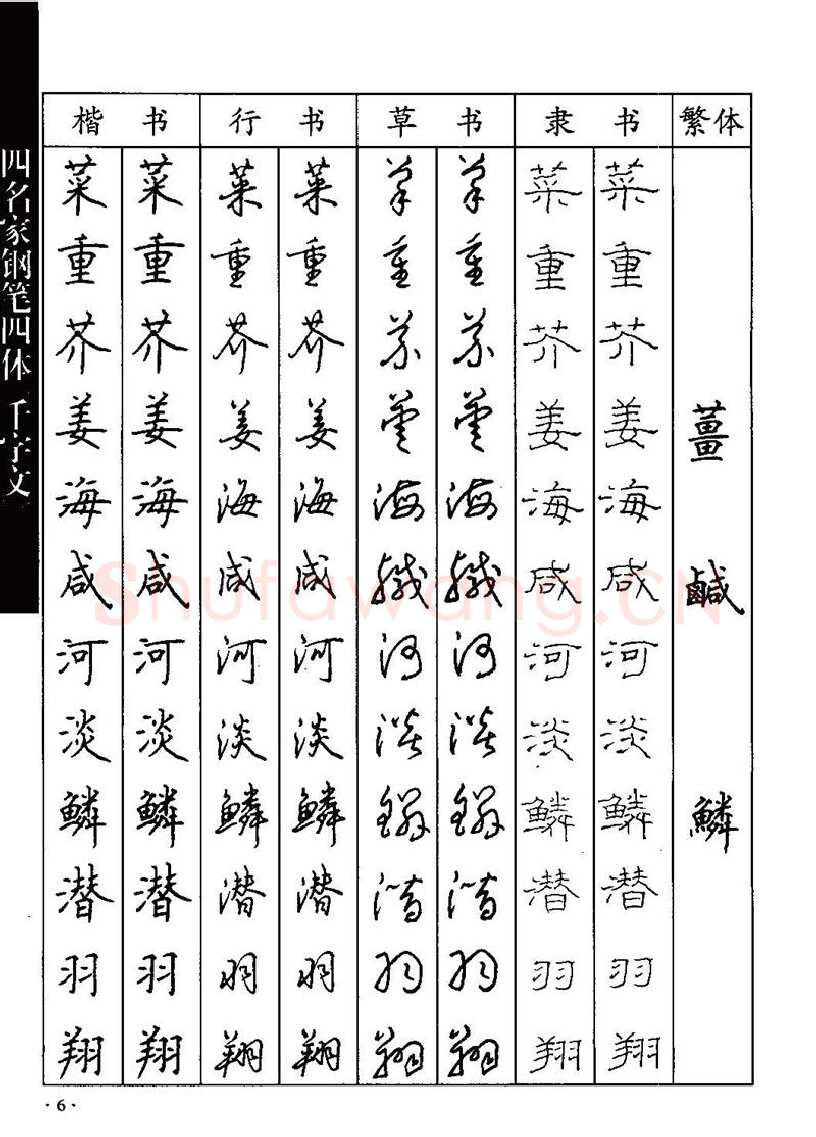 四名家钢笔四体 千字文
楷书 行书 草书 隶书 繁体
菜 菜 菜 菜 菜 菜 菜 菜
重 重 重 重 重 重 重 重
芥 芥 芥 芥 芥 芥 芥 芥
姜 姜 姜 姜 薑 薑 姜 姜 薑
海 海 海 海 海 海 海 海
咸 咸 咸 咸 鹹 鹹 咸 咸 鹹
河 河 河 河 河 河 河 河
淡 淡 淡 淡 淡 淡 淡 淡
鳞 鳞 鳞 鳞 鳞 鳞 鳞 鳞 鱗
潜 潜 潜 潜 潜 潜 潜 潜
羽 羽 羽 羽 羽 羽 羽 羽
翔 翔 翔 翔 翔 翔 翔 翔
Shufawang.CN
·6·